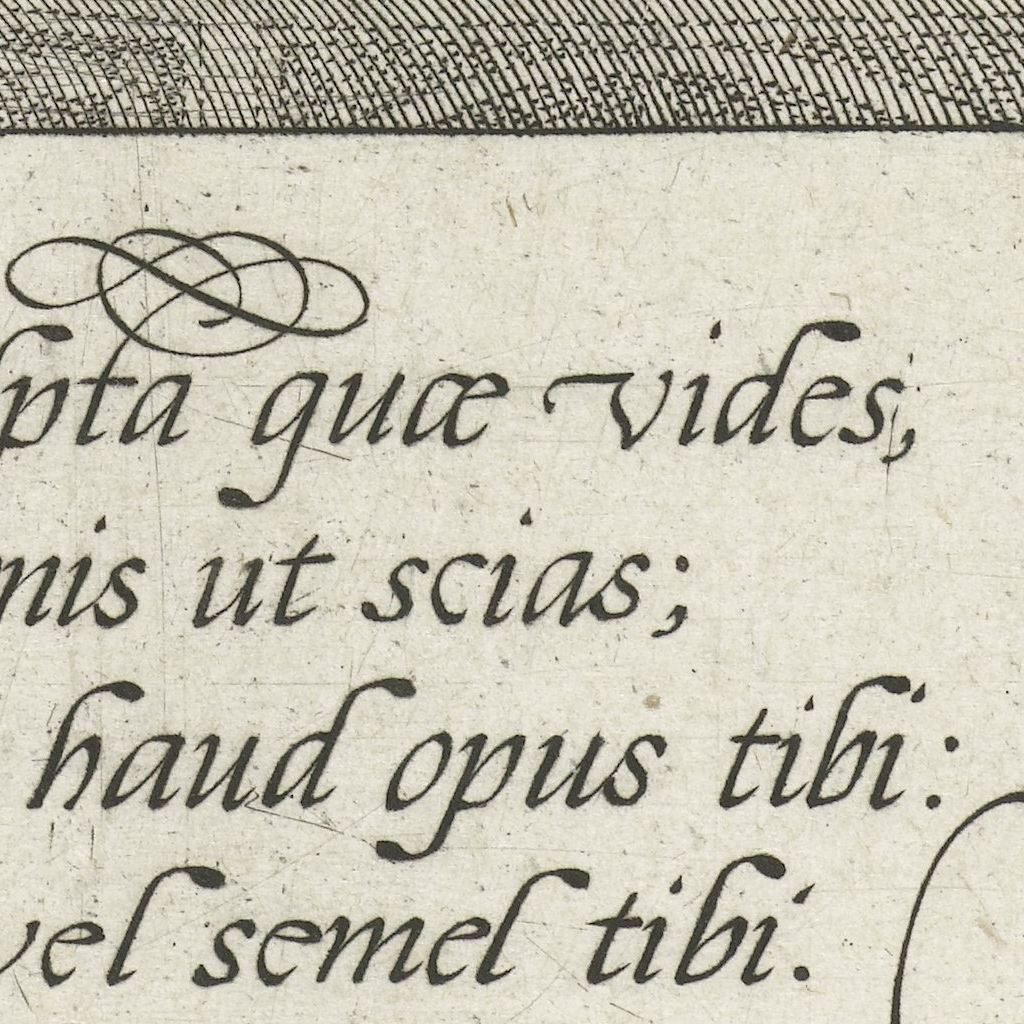 pta quæ vides,
nis ut scias;
haud opus tibi:
vel semel tibi.